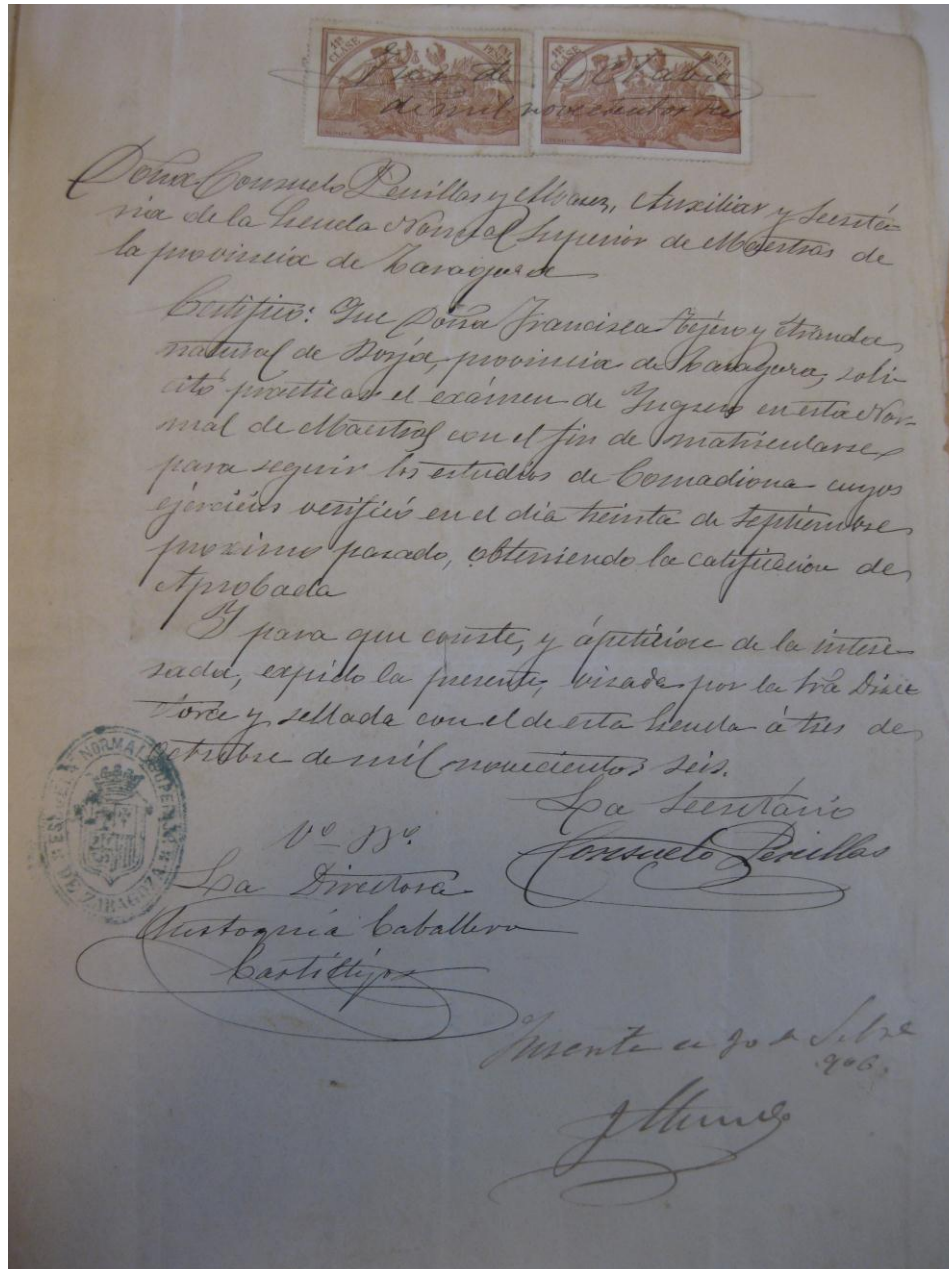 11ª CLASE UNA PESETA 11ª CLASE UNA PESETA
tres de Octubre
de mil novecientos seis
Doña Consuelo Penillas y Alvarez, Auxiliar y Secretá-
ria de la Escuela Normal Superior de Maestras de
la provincia de Zaragoza
Certifico: Que Doña Francisca Tejero y Aranda,
natural de Borja, provincia de Zaragoza, soli-
citó practicar el exámen de Ingreso en esta Nor-
mal de Maestras con el fin de matricularse
para seguir los estudios de Comadrona cuyos
ejercicios verificó en el dia treinta de Septiembre
proximo pasado, obteniendo la calificacion de
Aprobada
Y para que conste, y á peticion de la intere-
sada, expido la presente, visada por la Sra Direc
tora y sellada con el de esta Escuela á tres de
Octubre de mil novecientos seis.
La Secretária
Consuelo Penillas
Vº Bº
La Directora
Eustoquia Caballero
Castillejos
ESCUELA NORMAL SUPERIOR
DE ZARAGOZA
906.